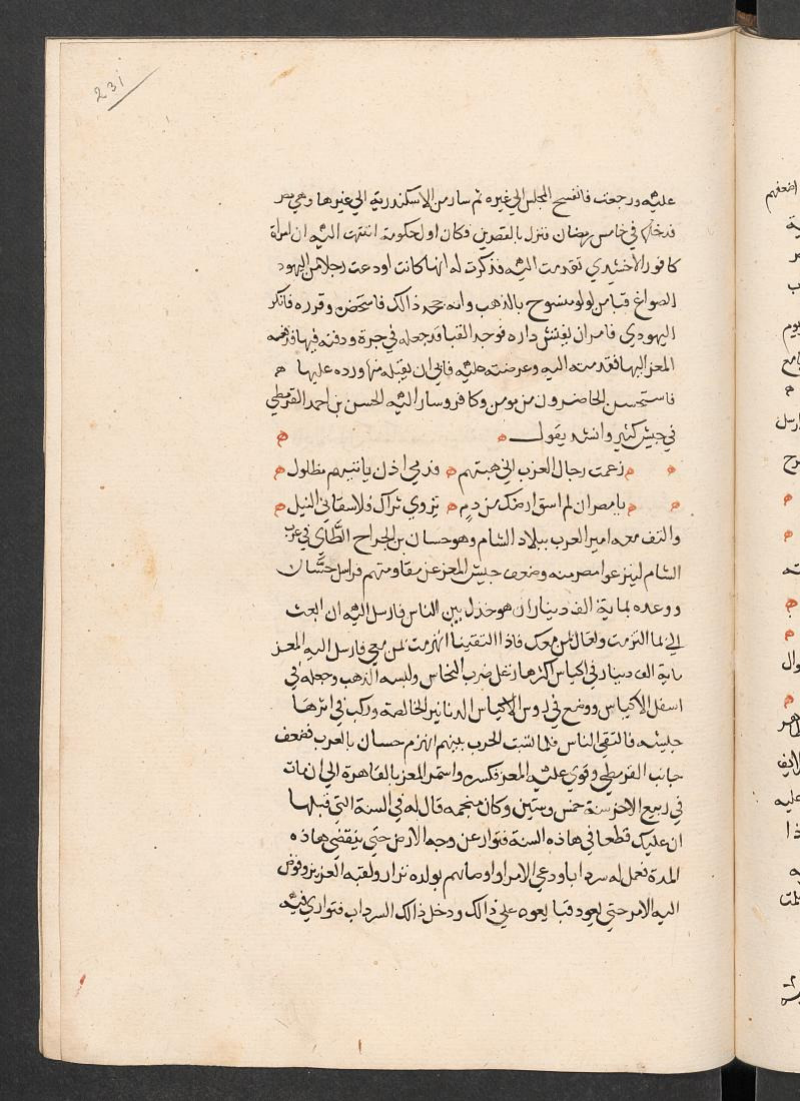 231
عليه ورجعت فانفسح المجلس الي غيره ثم سار من الاسكندرية الي غيرها وهي مصر
فدخلها في خامس رمضان فنزل بالقصرين فكان اول حكومة انتهت اليه ان امراة
كافور الاخشيدي تقدمت اليه فذكرت له انها كانت اودعت رجلا من اليهود
الصواغ قبا من لولو منسوج بالذهب وانه جحد ذالك فاستحضر وقرره فانكر
اليهودي فامر ان يفتش داره فوجد القبا قد جعله في جرة ودفنه فيها فدفعه
المعز اليها فقدمته اليه وعرضته عليه فابي ان يقبله منها ورده عليها ه
فاستحسن الحاضرون من مومن وكافر وسار اليه الحسن بن احمد القرمطي
في جيش كثير وانشد يقول ه ه
ه ه زعمت رجال العرب اني هبتهم ه فدمي اذن يا بينهم مطلول ه
ه ه يا مصر ان لم اسق ارضك من دم ه يروي ثراك فلا سقاني النيل ه
والتف معه امير العرب ببلاد الشام وهو حسان بن الجراح الطاي في عرب
الشام لينزعوا مصر منه وضعف جيش المعز عن مقاومتهم فراسل حسان
ووعده بماية الف دينار ان هو خذل بين الناس فارسل اليه ان ابعث
الي بما التزمت وتعال بمن معك فاذا التقينا انهزمت بمن معي فارسل اليه المعز
ماية الف دينار في اكياس اكثرها زغل ضرب النحاس ولبسه الذهب وجعله في
اسفل الاكياس ووضع في روس الاكياس الدنانير الخالصة وركب في اثرها
جيشه فالتقي الناس فلما نشبت الحرب بينهم انهزم حسان بالعرب فضعف
جانب القرمطي وقوي عليه المعز فكسره واستمر المعز بالقاهرة الي ان مات
في ربيع الاخر سنة خمس وستين وكان منجمه قال له في السنة التي قبلها
ان عليك قطعا في هاذه السنة فتوار عن وجه الارض حتي ينقضي هاذه
المدة فعمل له سردابا ودعي الامرا واوصاهم بولده نزار ولقبه العزيز وفوض
اليه الامر حتي يعود فبايعوه علي ذالك ودخل ذالك السرداب فتواري فيه